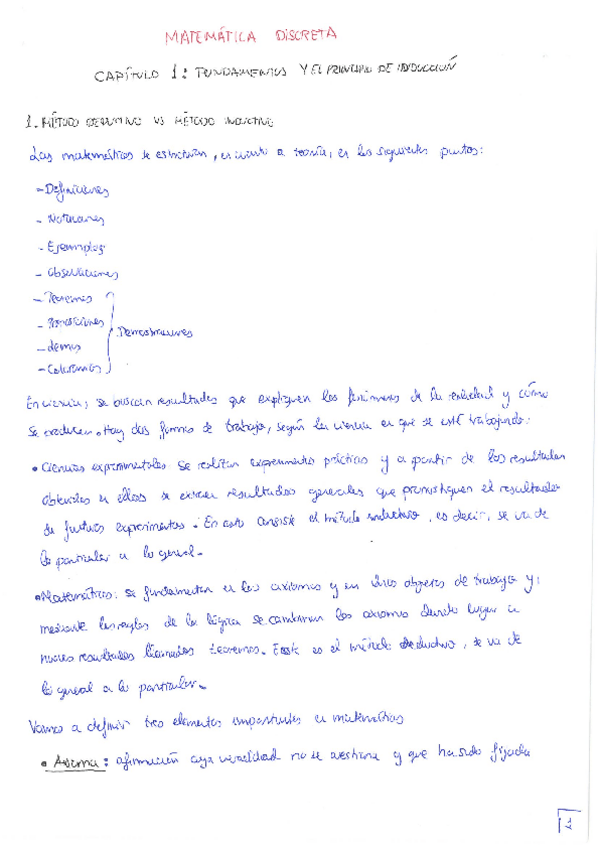 MATEMÁTICA DISCRETA
CAPÍTULO 1: FUNDAMENTOS Y EL PRINCIPIO DE INDUCCIÓN
1. MÉTODO DEDUCTIVO VS MÉTODO INDUCTIVO
Las matemáticas se estructuran, en cuanto a teoría, en los siguientes puntos:
- Definiciones
- Notaciones
- Ejemplos
- Observaciones
- Teoremas
- Proposiciones
Demostraciones
- Lemas
- Corolarios
En ciencias, se buscan resultados que expliquen los fenómenos de la realidad y cómo
se producen. Hay dos formas de trabajo, según la ciencia en que se esté trabajando:
• Ciencias experimentales se realizan experimentos prácticos y a partir de los resultados
obtenidos en ellos se extraen resultados generales que pronostiquen el resultado
de futuros experimentos. En esto consiste el método inductivo, es decir, se va de
lo particular a lo general.
• Matemáticas: se fundamentan en los axiomas y en unos objetos de trabajo y;
mediante las reglas de la lógica se combinan los axiomas dando lugar a
nuevos resultados llamados teoremas. Este es el método deductivo, se va de
lo general a lo particular.
Vamos a definir tres elementos importantes en matemáticas
• Axioma: afirmación cuya veracidad no se cuestiona y que ha sido fijada